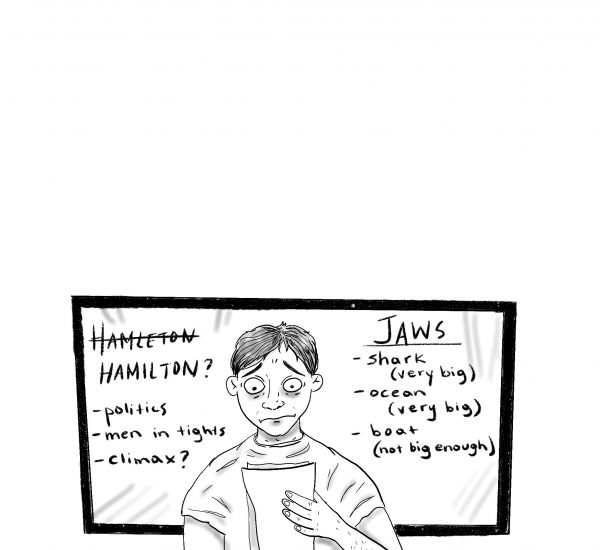 HAMLETON
HAMILTON?
- politics
- men in tights
- climax?
JAWS
- shark
(very big)
- ocean
(very big)
- boat
(not big enough)